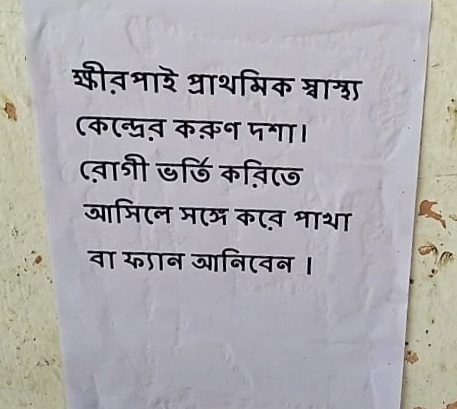 ক্ষীরপাই প্রাথমিক স্বাস্থ্য
কেন্দ্রের করুণ দশা।
রোগী ভর্তি করিতে
আসিলে সঙ্গে করে পাখা
বা ফ্যান আনিবেন ।